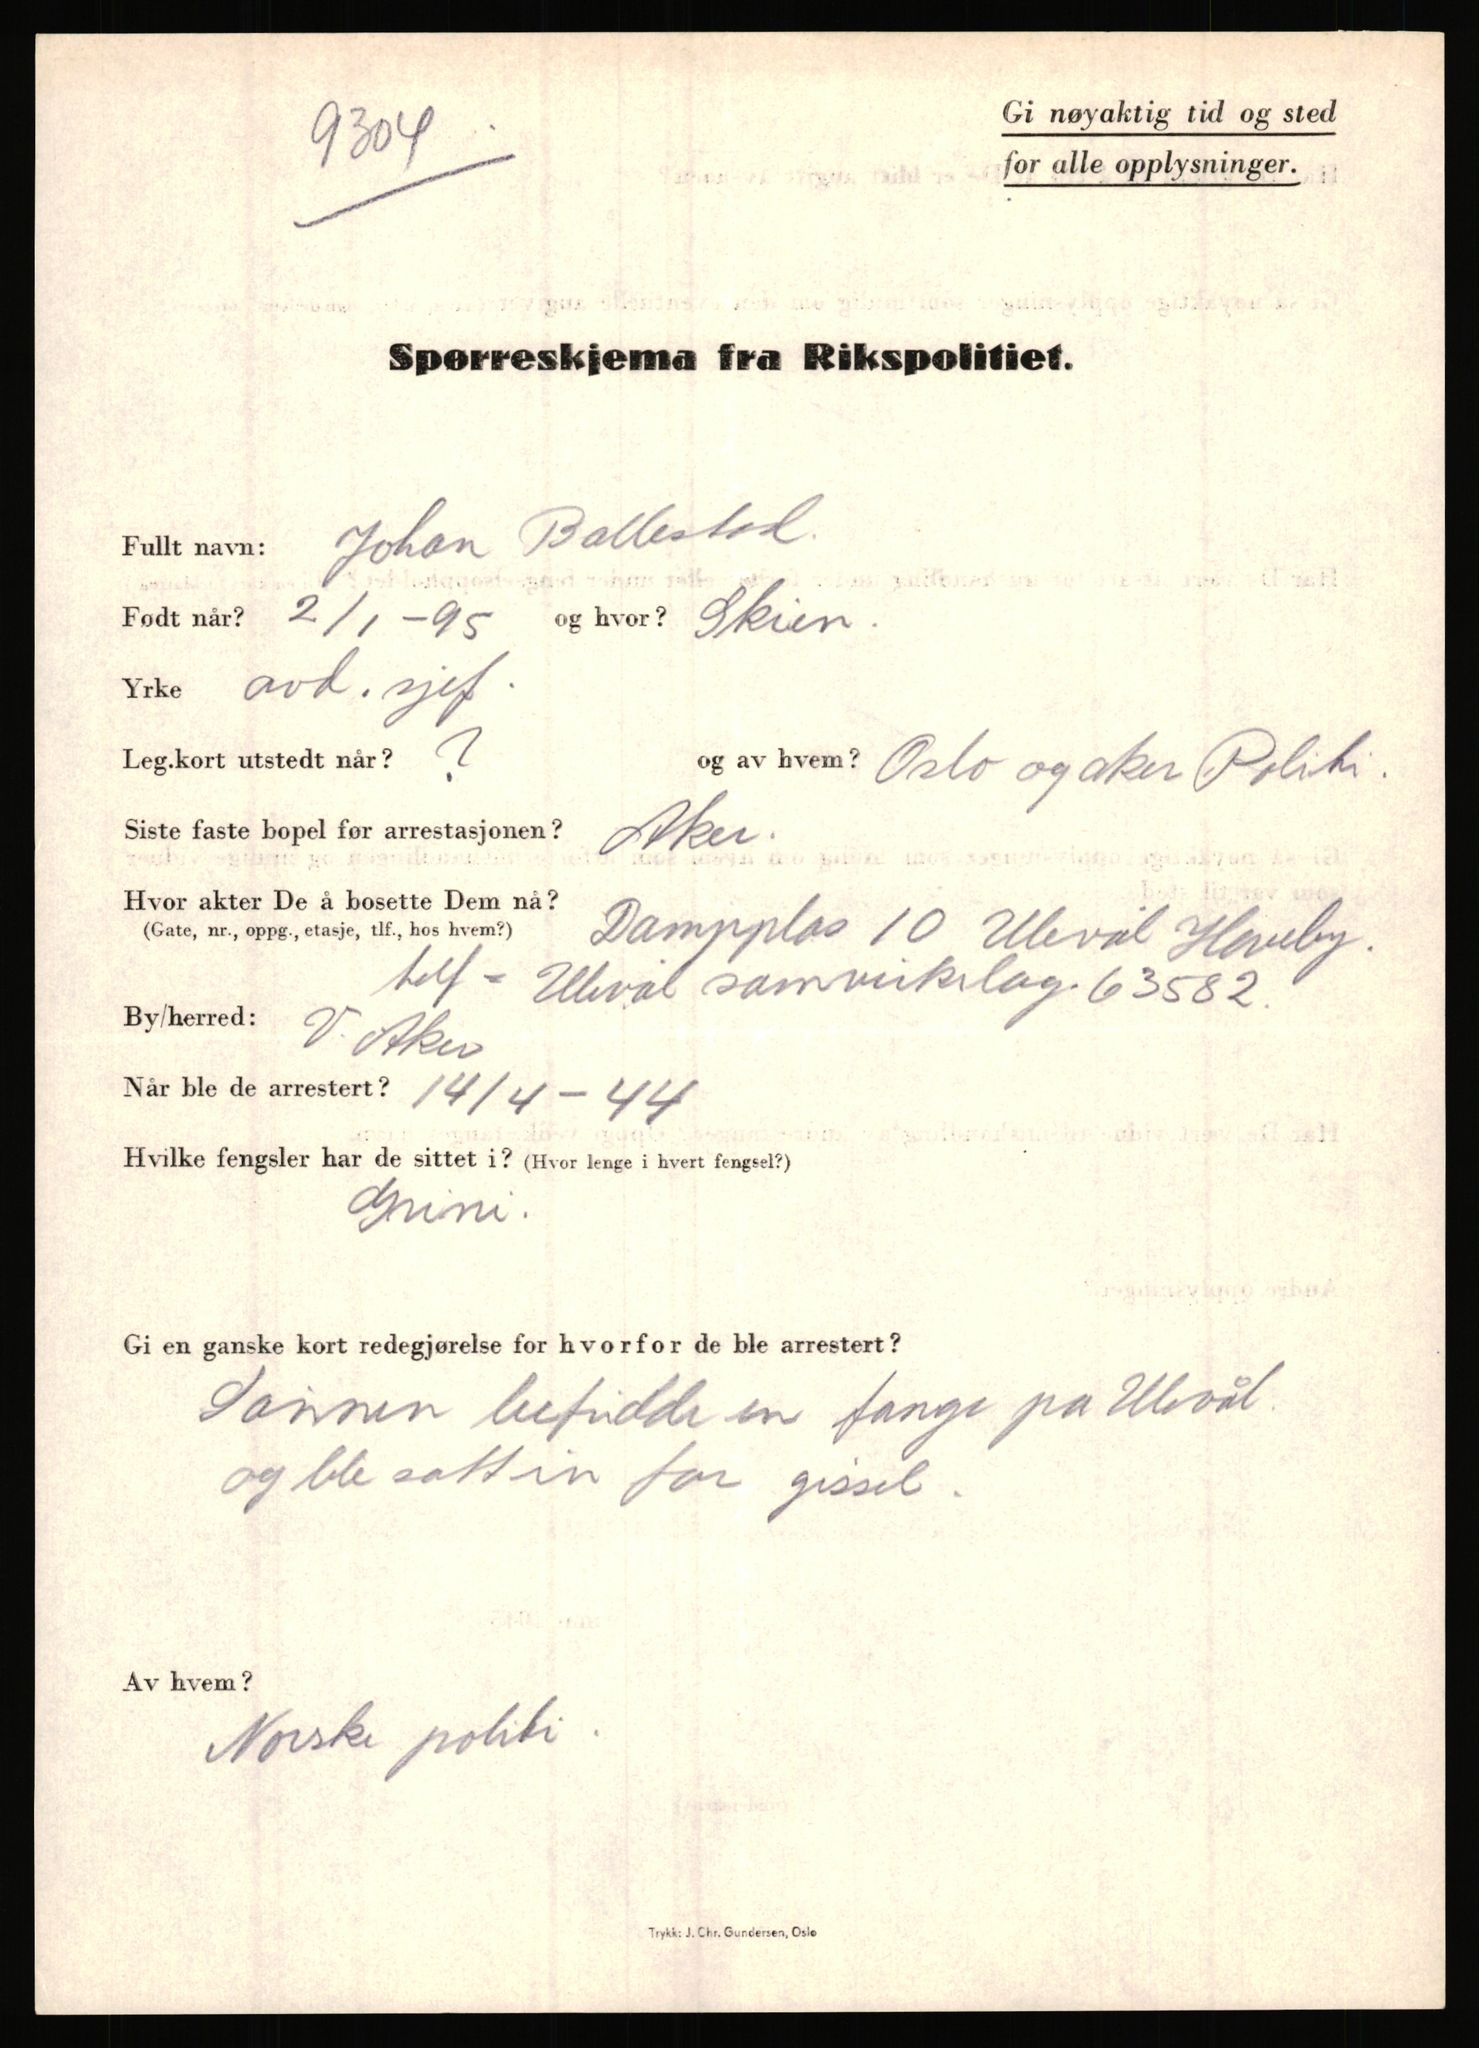 9304
Gi nøyaktig tid og sted
for alle opplysninger.
Spørreskjema fra Rikspolitiet.
Fullt navn: Johan Ballestad.
Født når? 2/1-95 og hvor? Skien.
Yrke avd. sjef.
Leg.kort utstedt når? ? og av hvem? Oslo og aker Politi.
Siste faste bopel før arrestasjonen? Aker.
Hvor akter De å bosette Dem nå?
(Gate, nr., oppg., etasje, tlf., hos hvem?) Dampplas 10 Ulevål Haveby.
telf - Ulevål samvirkelag. 63582.
By/herred: V. Aker
Når ble de arrestert? 14/4-44
Hvilke fengsler har de sittet i? (Hvor lenge i hvert fengsel?)
Grini.
Gi en ganske kort redegjørelse for hvorfor de ble arrestert?
Sønnen befridde en fange på Ulevål.
og ble satt in for gissel.
Av hvem?
Norske politi.
Trykk: J. Chr. Gundersen, Oslo